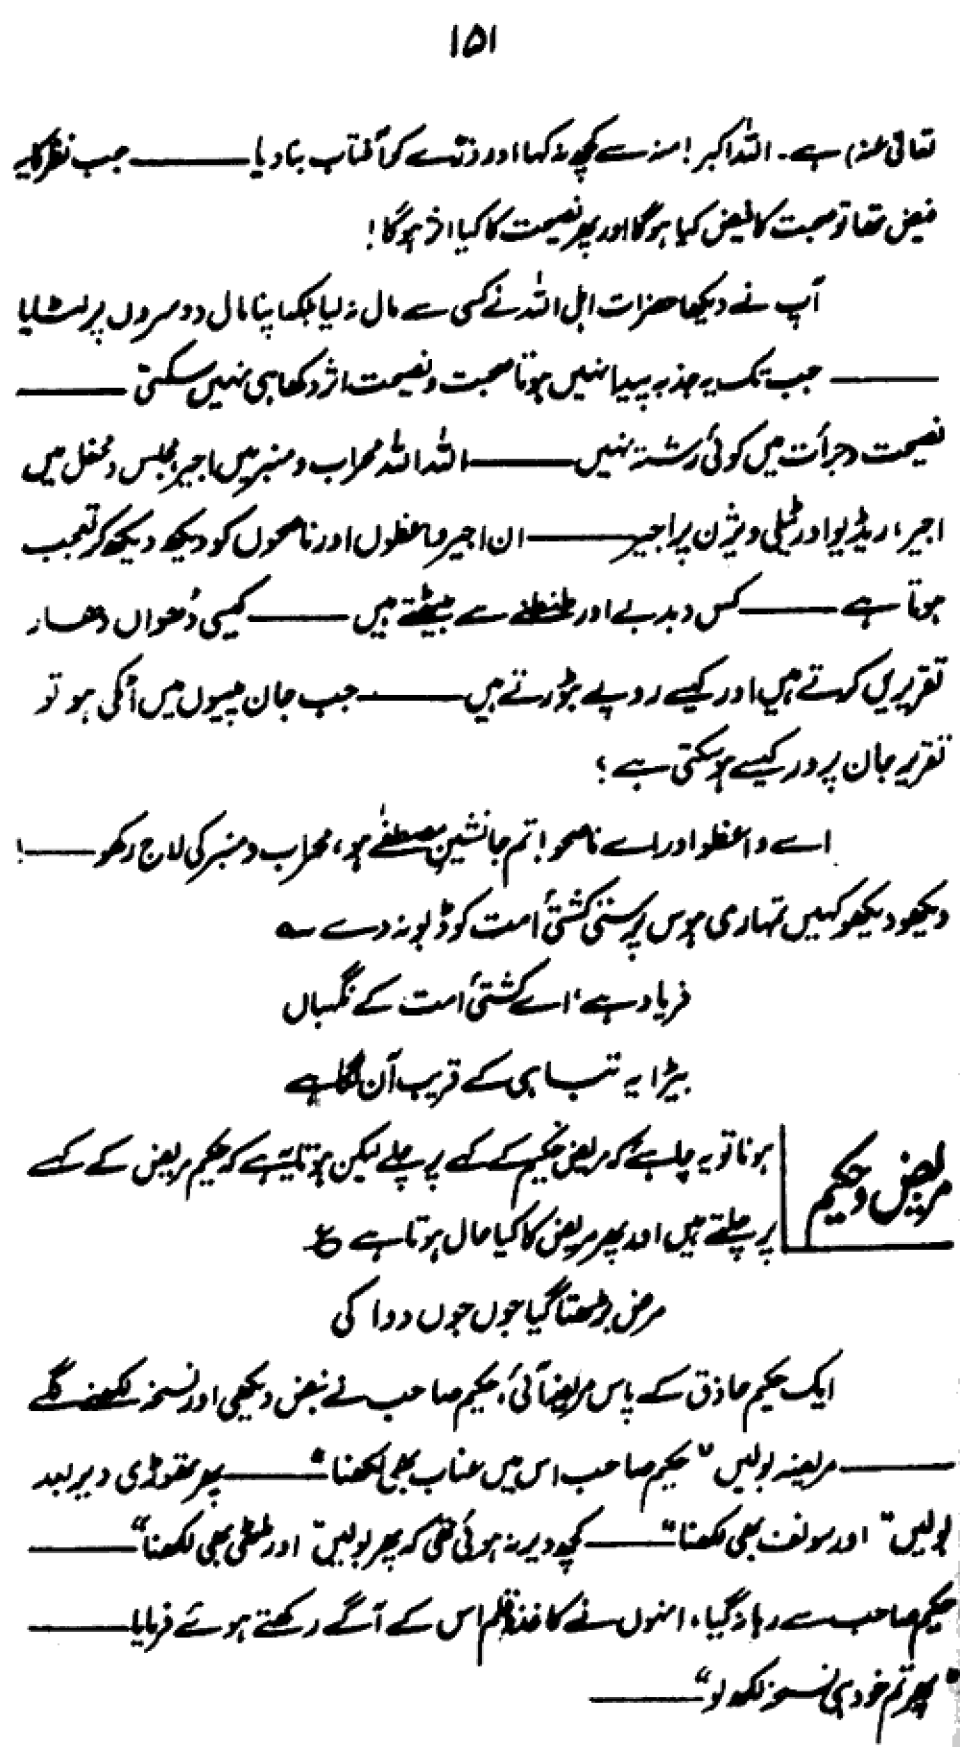 ۱۵۱
تعالیٰ عنہ) ہے۔ اللہ اکبر! منہ سے کچھ نہ کہا اور ذرّے کو آفتاب بنا دیا ——— جب نظر کا یہ
فیض تھا تو صحبت کا فیض کیا ہوگا اور پھر نصیحت کا کیا اثر ہوگا!
آپ نے دیکھا حضرات اہل اللہ نے کسی سے مال نہ لیا بلکہ اپنا مال دوسروں پر لٹایا
——— جب تک یہ جذبہ پیدا نہیں ہوتا صحبت و نصیحت اثر دکھا ہی نہیں سکتی ———
نصیحت و جرأت میں کوئی رشتہ نہیں ——— اللہ اللہ محراب و منبر میں اجیر، مجلس و محفل میں
اجیر، ریڈیو اور ٹیلی ویژن پر اجیر ——— ان اجیر واعظوں اور ناصحوں کو دیکھ دیکھ کر تعجب
ہوتا ہے ——— کس دبدبے اور طنطنے سے بیٹھتے ہیں ——— کیسی دُھواں دھار
تقریریں کرتے ہیں اور کیسے روپے بٹورتے ہیں ——— جب جان پیسوں میں اٹکی ہو تو
تقریر جان پرور کیسے ہوسکتی ہے؟
اے واعظو اور اے ناصحو! تم جانشینِ مصطفےٰ ہو، محراب و منبر کی لاج رکھو ———!
دیکھو دیکھو کہیں تمہاری ہوس پرستی کشتیٔ امت کو ڈبو نہ دے ؎
فریاد ہے، اے کشتیٔ امت کے نگہباں
بیڑا یہ تباہی کے قریب آن لگا ہے
مریض و حکیم
ہونا تو یہ چاہیئے کہ مریض حکیم کے کہے پر چلے لیکن ہوتا یہ ہے کہ حکیم مریض کے کہے
پر چلتے ہیں اور پھر مریض کا کیا حال ہوتا ہے ؏
مرض بڑھتا گیا جوں جوں دوا کی
ایک حکیم حاذق کے پاس مریضہ آئی، حکیم صاحب نے نبض دیکھی اور نسخہ لکھنے لگے
——— مریضہ بولیں "حکیم صاحب اس میں عناب بھی لکھنا" ——— پھر تھوڑی دیر بعد
بولیں "اور سونف بھی لکھنا" ——— کچھ دیر نہ ہوئی تھی کہ پھر بولیں "اور ملٹھی بھی لکھنا" ———
حکیم صاحب سے رہا نہ گیا، انہوں نے کاغذ قلم اس کے آگے رکھتے ہوئے فرمایا ———
"پھر تم خود ہی نسخہ لکھ لو" ———